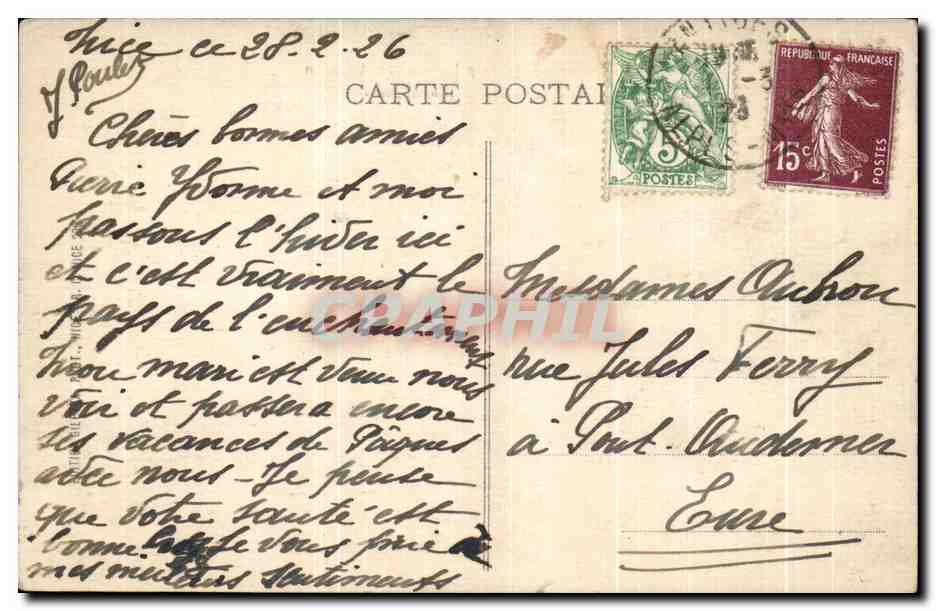 Nice ce 28.2.26
J Poulet
CARTE POSTAL
Chères bonnes amies
Pierre Yvonne et moi
passons l'hiver ici
et c'est vraiment le
pays de l'enchantement
Mon mari est venu nous
voir et passera encore
ses vacances de Pâques
avec nous - Je pense
que votre santé est
bonne Je vous prie
mes meilleurs sentiments
5
POSTES
REPUBLIQUE FRANÇAISE
15c
POSTES
CRAPHIL
Mesdames Aubrou
rue Jules Ferry
à Pont-Audemer
Eure